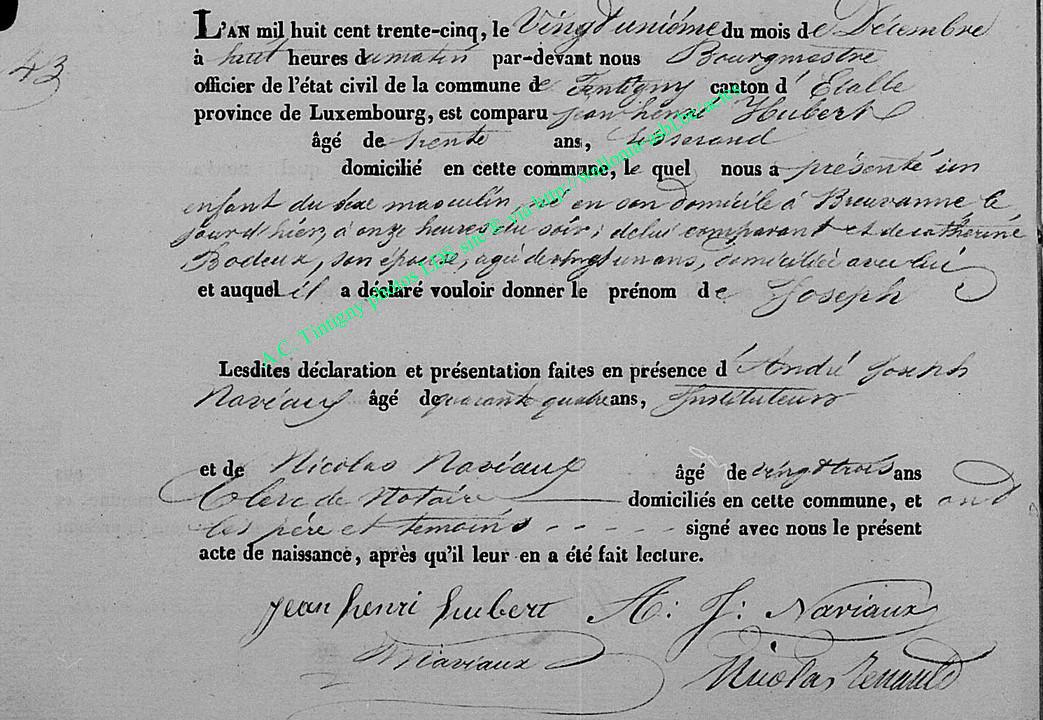 43
L'AN mil huit cent trente-cinq, le Vingt unième du mois de Décembre
à huit heures du matin par-devant nous Bourgmestre
officier de l'état civil de la commune de Tintigny canton d' Etalle
province de Luxembourg, est comparu Jean henri Hubert
âgé de trente ans, tisserand
domicilié en cette commune, le quel nous a présenté un
enfant du sexe masculin, né en son domicile à Breuvanne le
jour d'hier, à onze heures du soir, de lui comparant et de catherine
Bodeux, son épouse, agée de vingt un ans, domiciliée avec lui
et auquel il a déclaré vouloir donner le prénom de Joseph
A.C. Tintigny photos LDS site © via http://wallonia-asbl.be/actes
Lesdites déclaration et présentation faites en présence d'André Joseph
Naviaux âgé de quarante quatre ans, Instituteur
et de Nicolas Naviaux âgé de vingt trois ans
Clerc de Notaire domiciliés en cette commune, et ont
les père et témoins signé avec nous le présent
acte de naissance, après qu'il leur en a été fait lecture.
jean henri hubert A: J: Naviaux
Naviaux Nicolas Renauld